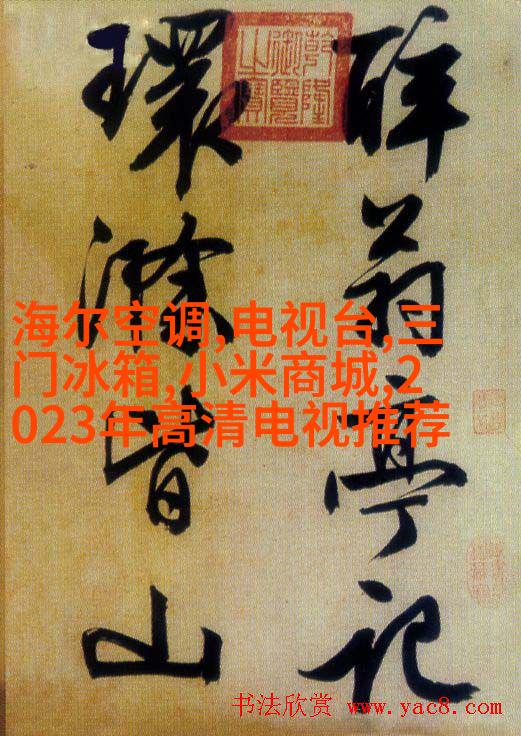 醉翁亭記
環滁皆山
乾隆
御覽
之寶
海尔空调,电视台,三
门冰箱,小米商城,2
023年高清电视推荐
书法欣赏 www.yac8.com